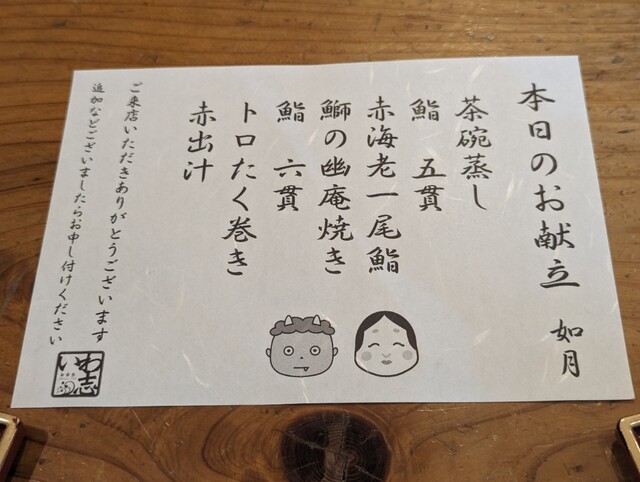 本日のお献立 如月
茶碗蒸し
鮨 五貫
赤海老一尾鮨
鰤の幽庵焼き
鮨 六貫
トロたく巻き
赤出汁
ご来店いただきありがとうございます
追加などございましたらお申し付けください
いわ志